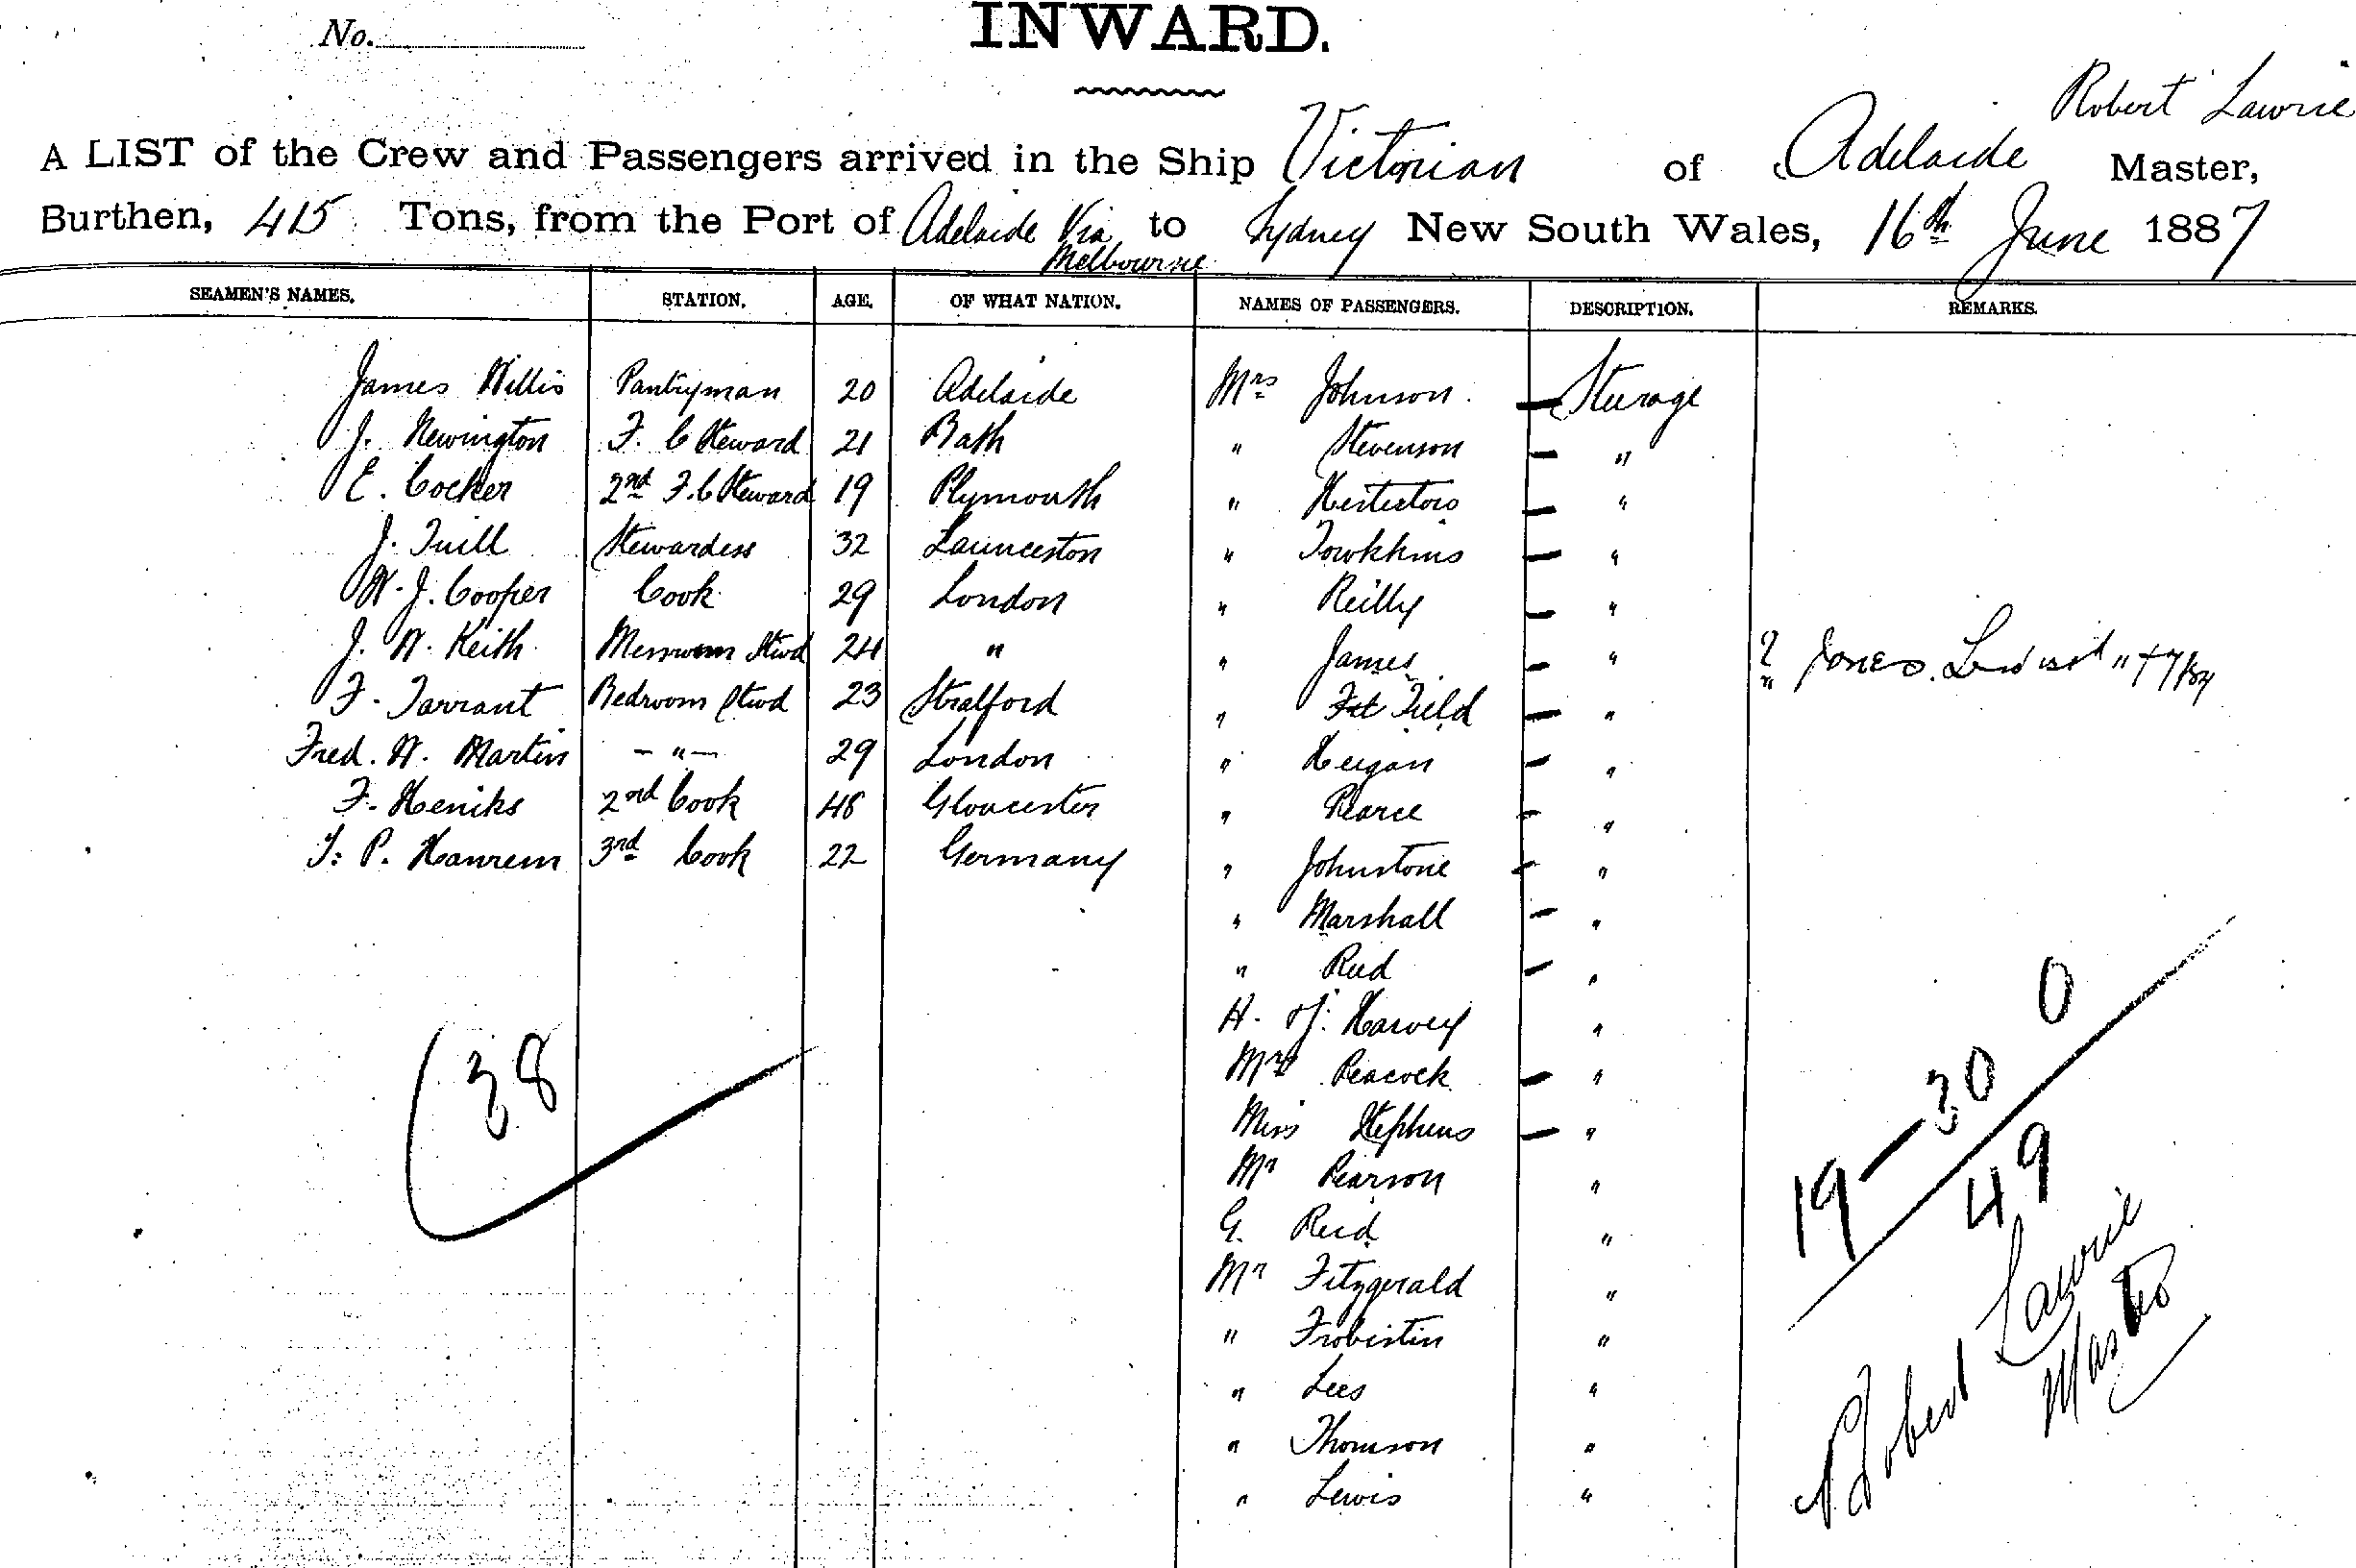 No.
INWARD.
Robert Lawrie
A LIST of the Crew and Passengers arrived in the Ship Victorian of Adelaide Master,
Burthen, 415 Tons, from the Port of Adelaide Via Melbourne to Sydney New South Wales, 16th June 1887
SEAMEN'S NAMES. STATION. AGE. OF WHAT NATION. NAMES OF PASSENGERS. DESCRIPTION. REMARKS.
James Willis Pantryman 20 Adelaide Mrs Johnson Steerage
J. Newington F. C Steward 21 Bath " Stevenson "
E. Cocker 2nd F. C Steward 19 Plymouth " "
J. Tuill Stewardess 32 Launceston " "
W. J. Cooper Cook 29 London " Reilly "
J. W. Keith Messroom Stwd 24 " " James "
" Jones
F. Tarrant Bedroom Stwd 23 Stratford " Field "
Fred. W. Martin - " - 29 London " Keegan "
F. Heniks 2nd Cook 48 Gloucester " Pearce "
P. 3rd Cook 22 Germany " Johnstone "
" Marshall "
" Reid "
H. J. Harvey "
Mrs Peacock "
Miss Stephens "
Mr Pearson "
G. Reid "
Mr Fitzgerald "
" Frobistin "
" Lees "
" Thomson "
" Lewis "
38
19 - 30 0
49
Robert Lawrie
Master